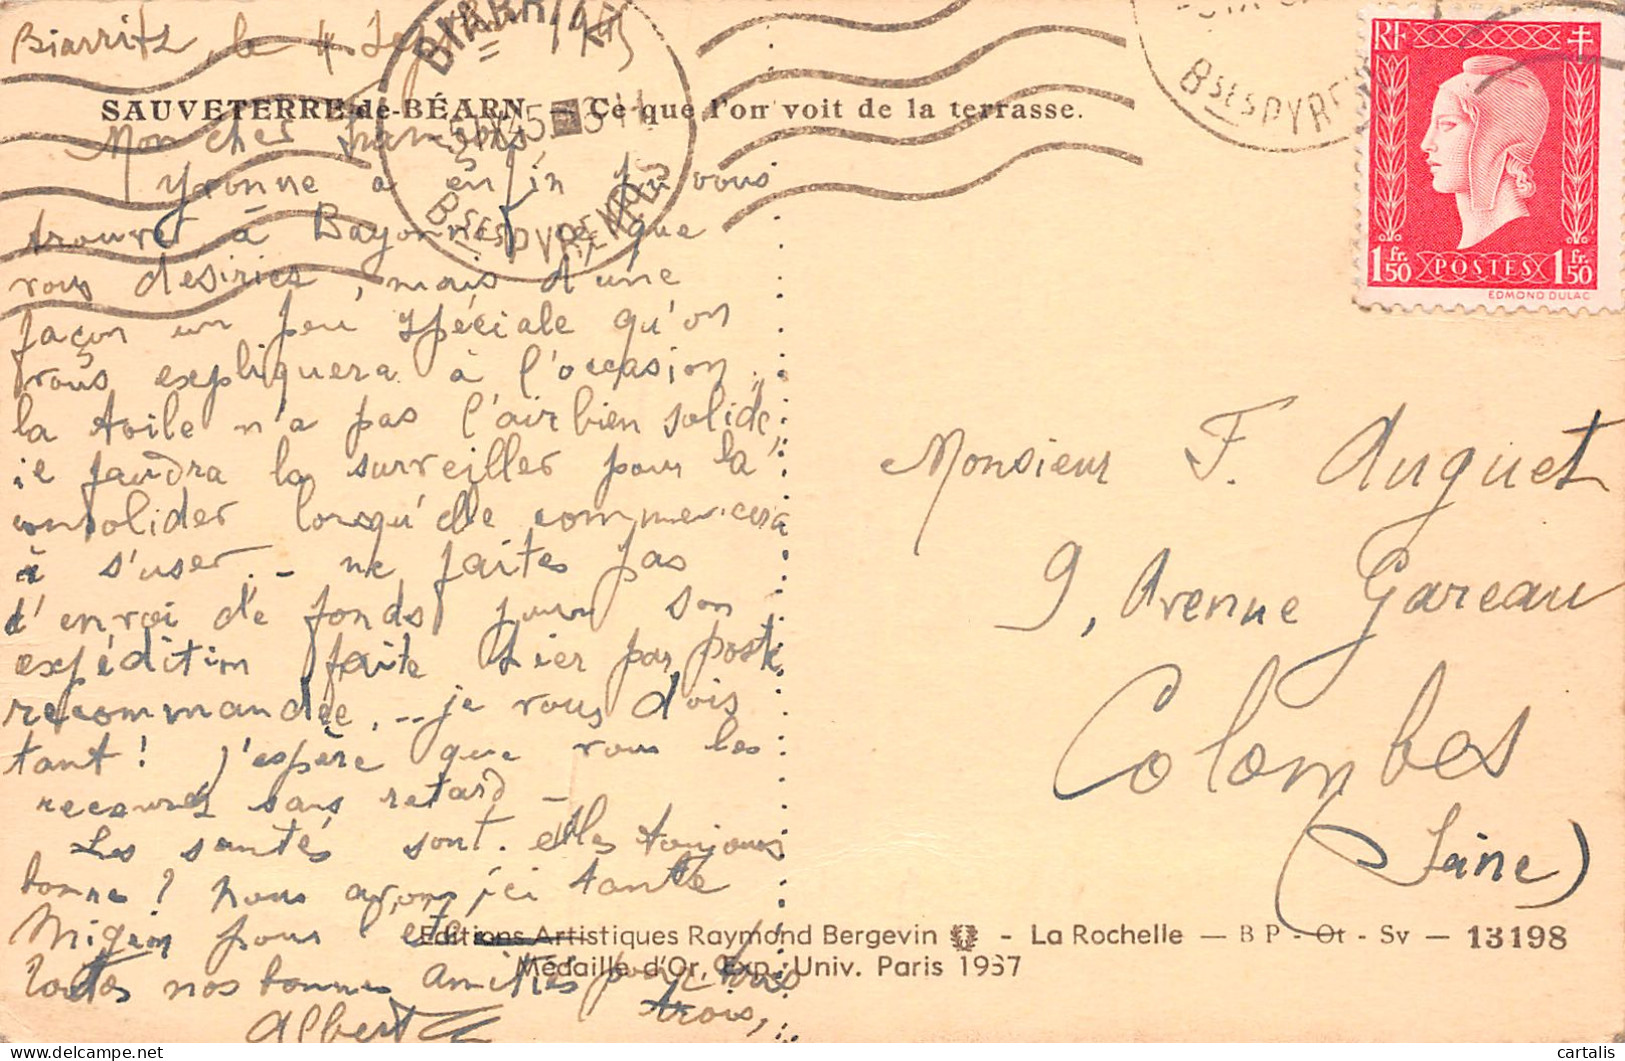 Biarritz, le 4
BIARRITZ
Bses PYRENEES
SAUVETERRE-de-BÉARN — Ce que l'on voit de la terrasse.
Mon cher
Yvonne a enfin pu vous
trouver à Bayonne ce que
vous désiriez, mais d'une
façon un peu spéciale qu'on
vous expliquera à l'occasion.
la toile n'a pas l'air bien solide,
il faudra la surveiller pour la
consolider lorsqu'elle commencera
à s'user. – ne faites pas
d'envoi de fonds pour son
expédition faite hier par poste
recommandée, -- je vous dois
tant! j'espère que vous les
recevrez sans retard –
Les santés sont-elles toujours
bonnes? nous avons ici tante
Mignon pour
Toutes nos bonnes amitiés pour tous
trois,
Albert
RF
1 fr. 50 POSTES 1 fr. 50
EDMOND DULAC
Bses PYRENEES
Monsieur F. Auguet
9, Avenue Gareau
Colombes
(Seine)
Editions Artistiques Raymond Bergevin - La Rochelle — B P - Ot - Sv — 13198
Médaille d'Or, Exp. Univ. Paris 1937
cartalis